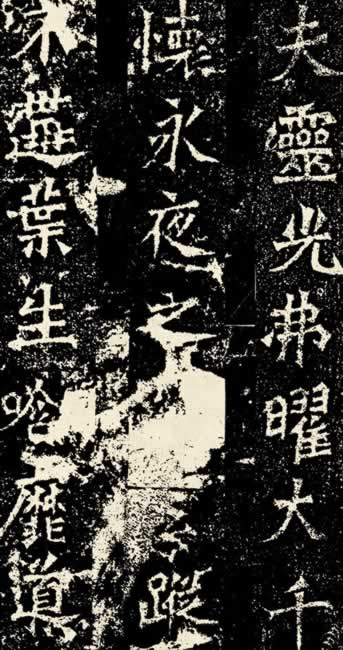 夫靈光弗曜大千
懷永夜之蹤
遘葉生唅靡道